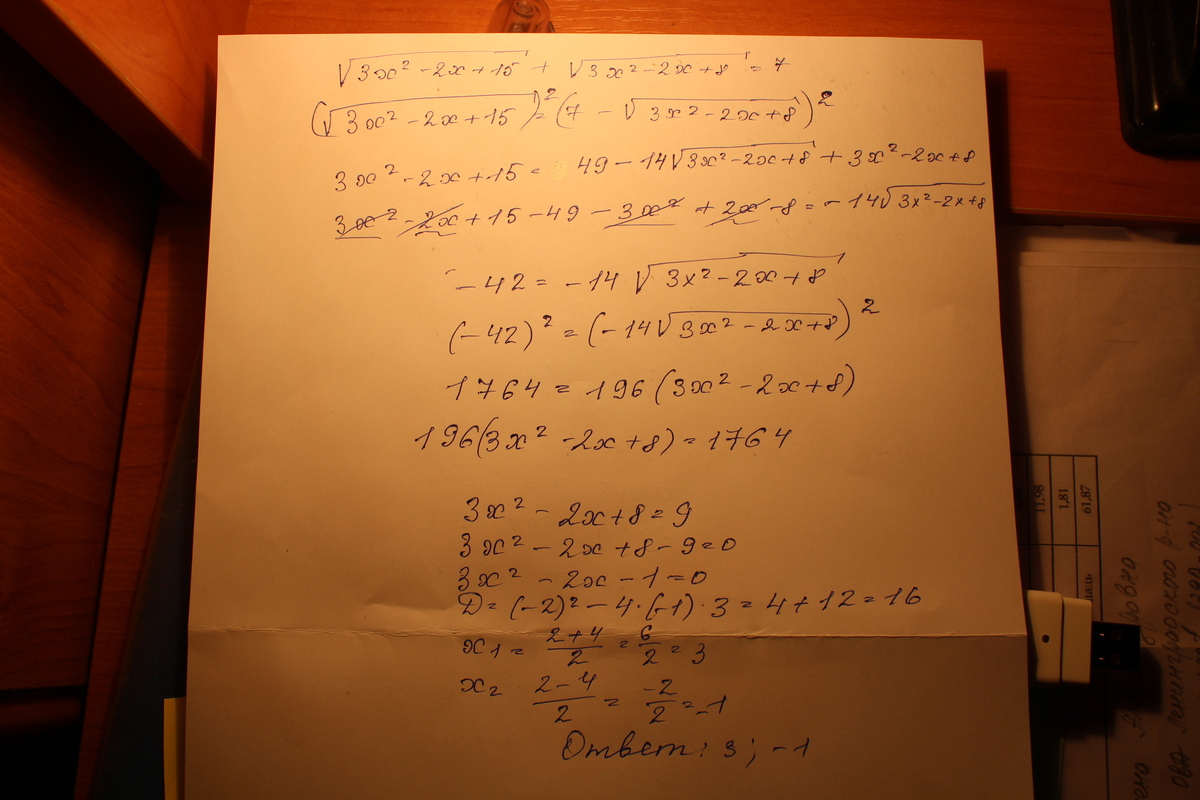 √3x² - 2x + 15 + √3x² - 2x + 8 = 7
(√3x² - 2x + 15)² = (7 - √3x² - 2x + 8)²
3x² - 2x + 15 = 49 - 14√3x² - 2x + 8 + 3x² - 2x + 8
3x² - 2x + 15 - 49 - 3x² + 2x - 8 = - 14√3x² - 2x + 8
- 42 = - 14 √3x² - 2x + 8
(- 42)² = (- 14√3x² - 2x + 8)²
1764 = 196 (3x² - 2x + 8)
196(3x² - 2x + 8) = 1764
3x² - 2x + 8 = 9
3x² - 2x + 8 - 9 = 0
3x² - 2x - 1 = 0
D = (-2)² - 4 · (-1) · 3 = 4 + 12 = 16
x1 = 2+4/2 = 6/2 = 3
x2 2-4/2 = -2/2 = -1
Ответ: 3; -1
11,98
1,81
61,87
ровна
Ленинградского р-на